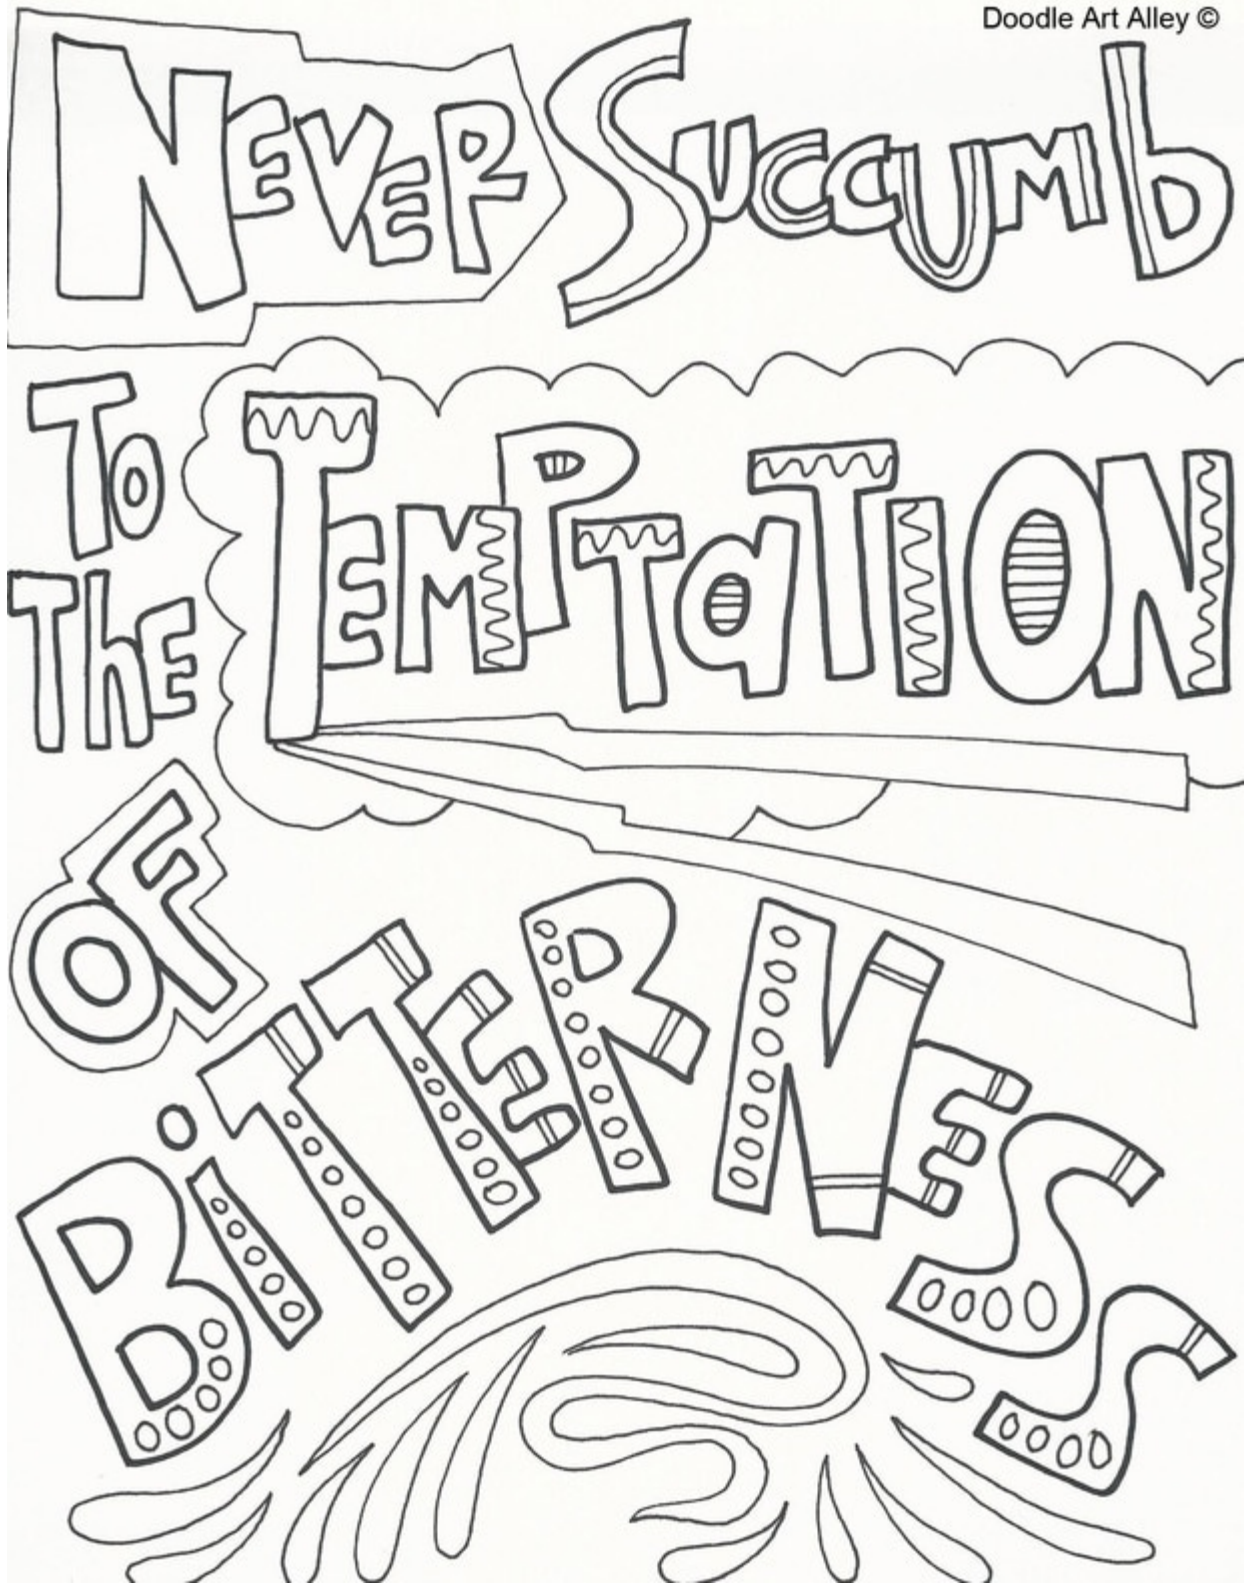 Doodle Art Alley ©
NEVER SUCCUMb
To
ThE
TEMPTaTION
OF
BiTTERNESS